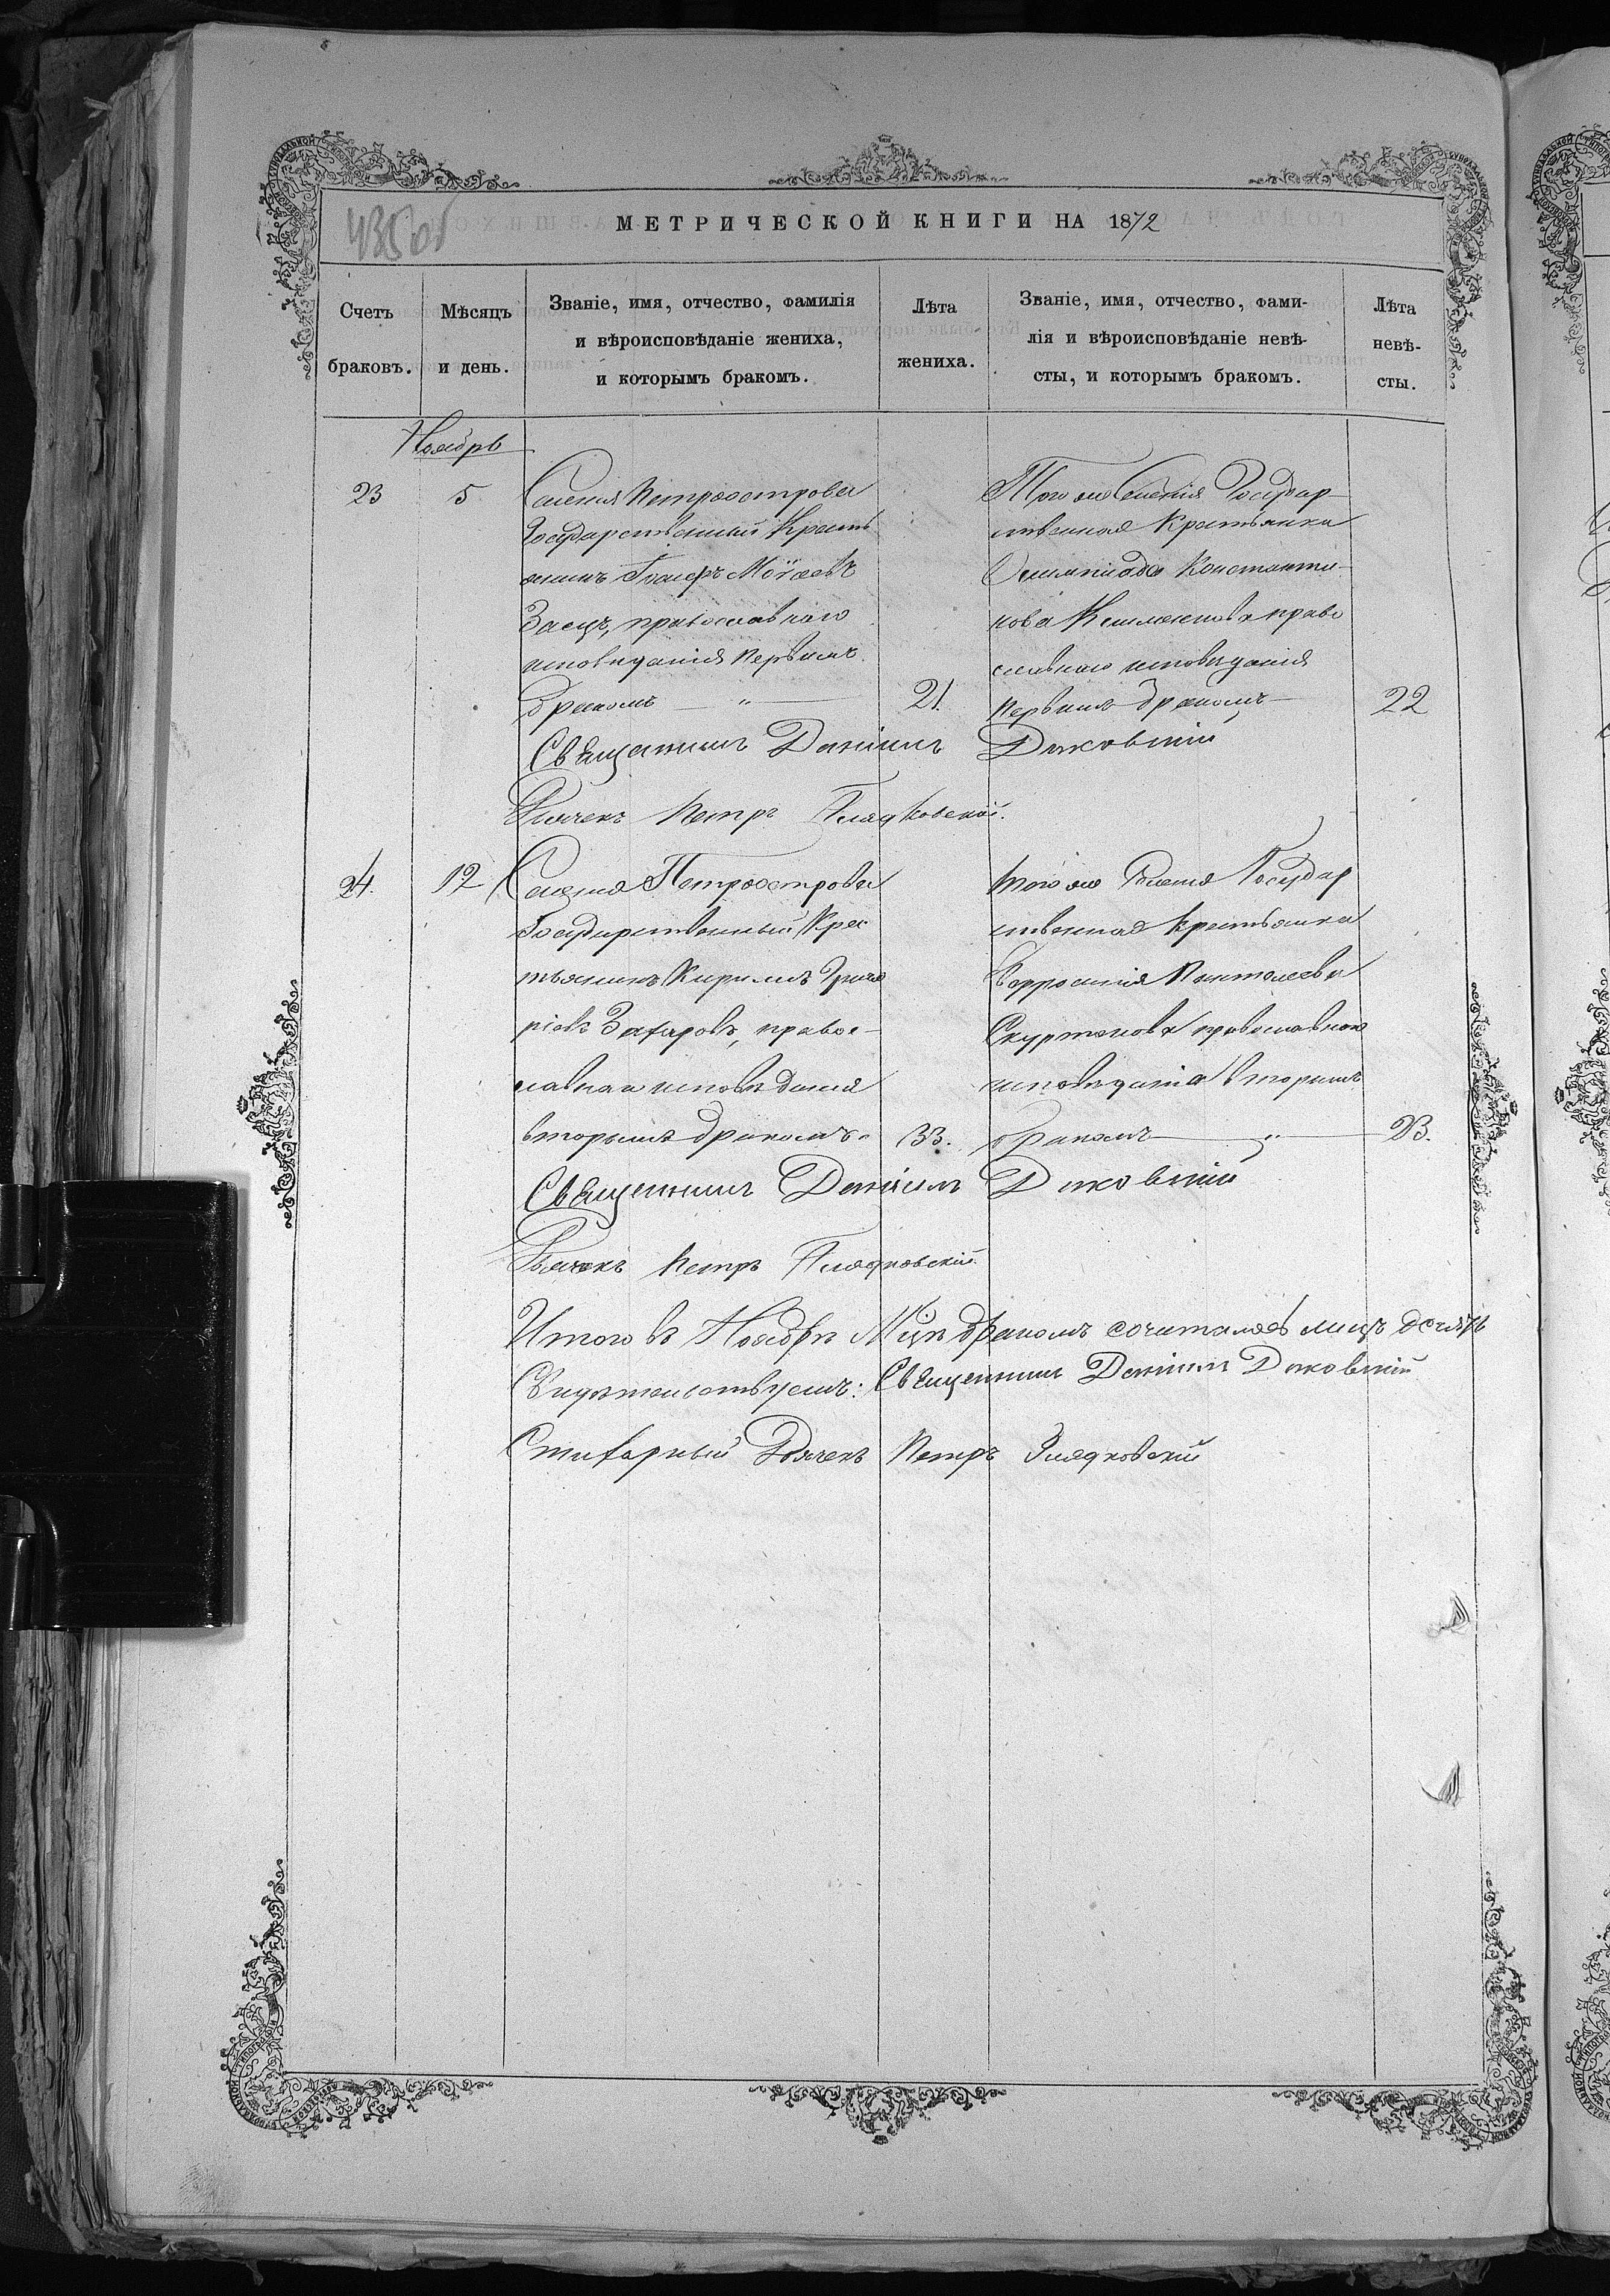 435 об
МЕТРИЧЕСКОЙ КНИГИ НА 1872
Счетъ браковъ.
Мѣсяцъ и день.
Званіе, имя, отчество, фамилія
и вѣроисповѣданіе жениха,
и которымъ бракомъ.
Лѣта жениха.
Званіе, имя, отчество, фами-
лія и вѣроисповѣданіе невѣ-
сты, и которымъ бракомъ.
Лѣта невѣ-
сты.
Ноябрь
23 5
Селенія Петроострова
Государственный Кресть
янинъ Іосифъ Моѵсеевъ
Заецъ, православнаго
исповѣданія первымъ
бракомъ — " — 21.
Того же Селенія Государ
ственная Крестьянка
Олимпіада Константи
нова православнаго исповѣданія
первымъ бракомъ — 22
Священникъ Даніилъ Дьяковскій
Дьячекъ Петръ Гладковскій.
24. 12
Селенія Петроострова
Государственный Крес
тьянинъ Кирилъ Григо
ріевъ Захаровъ, правос-
лавнаго исповѣданія
вторымъ бракомъ " 33.
Того же Селенія Государ
ственная Крестьянка
Евфросинія Пантелеева
Скуртанова православнаго
исповѣданія вторымъ
бракомъ — " — 23.
Священникъ Даніилъ Дьяковскій
Дьячекъ Петръ Гладковскій.
Итого въ Ноябрѣ М-цѣ бракомъ сочиталось лицъ
Свидѣтельствуемъ: Священникъ Даніилъ Дьяковскій
Стихарный Дьячекъ Петръ Гладковскій